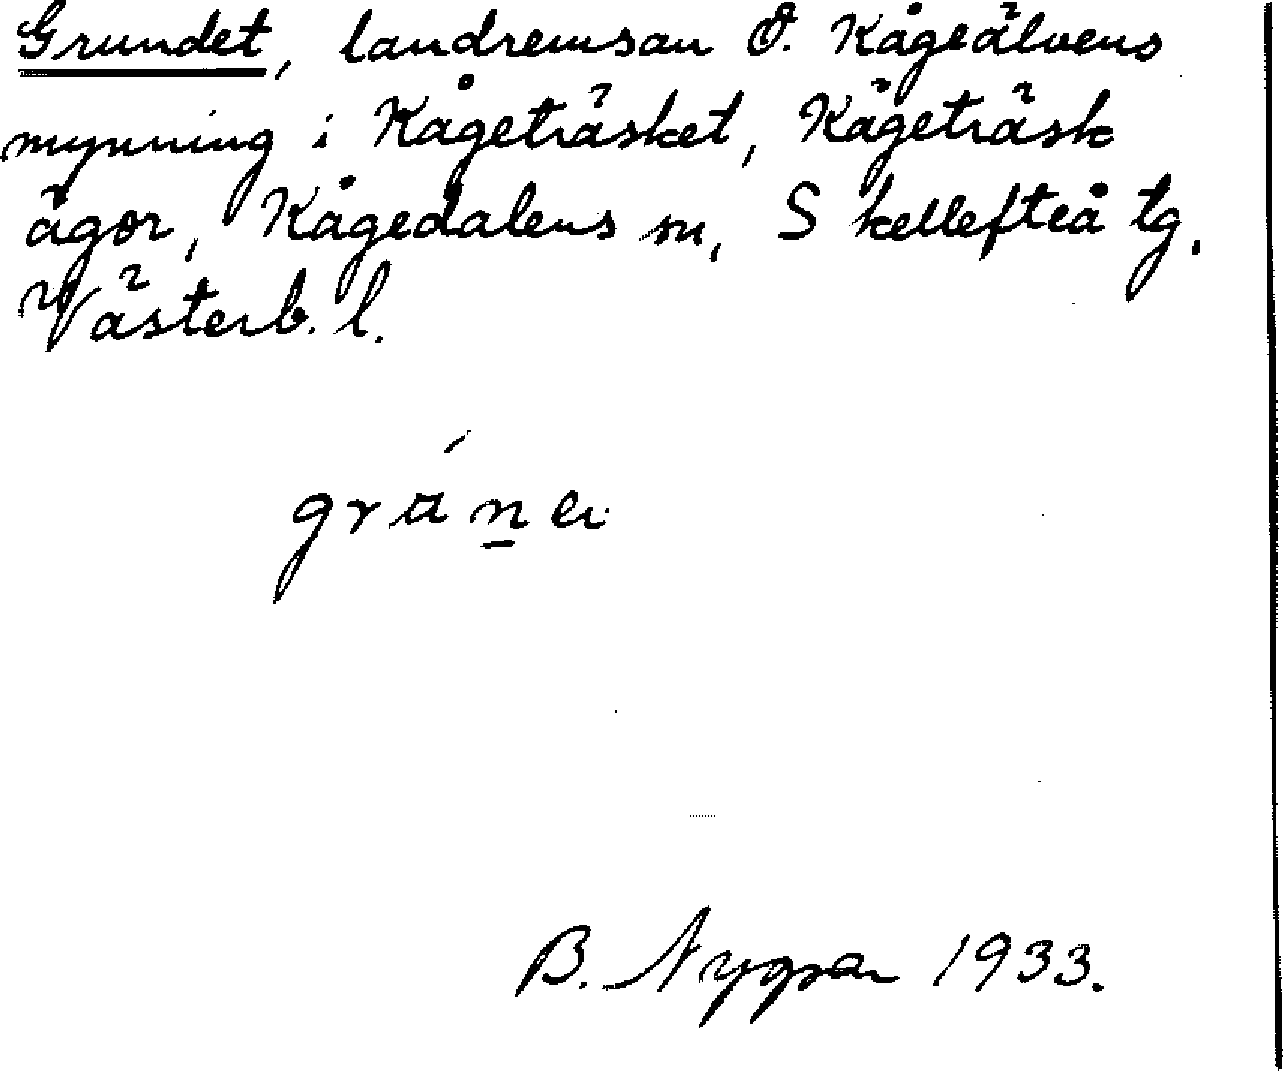 Grundet, landremsan Ö. Kågeälvens
mynning i Kågeträsket, Kågeträsk
ägor, Kågedalens sn, Skellefteå tg.
Västerb. l.
B. Nygren 1933.